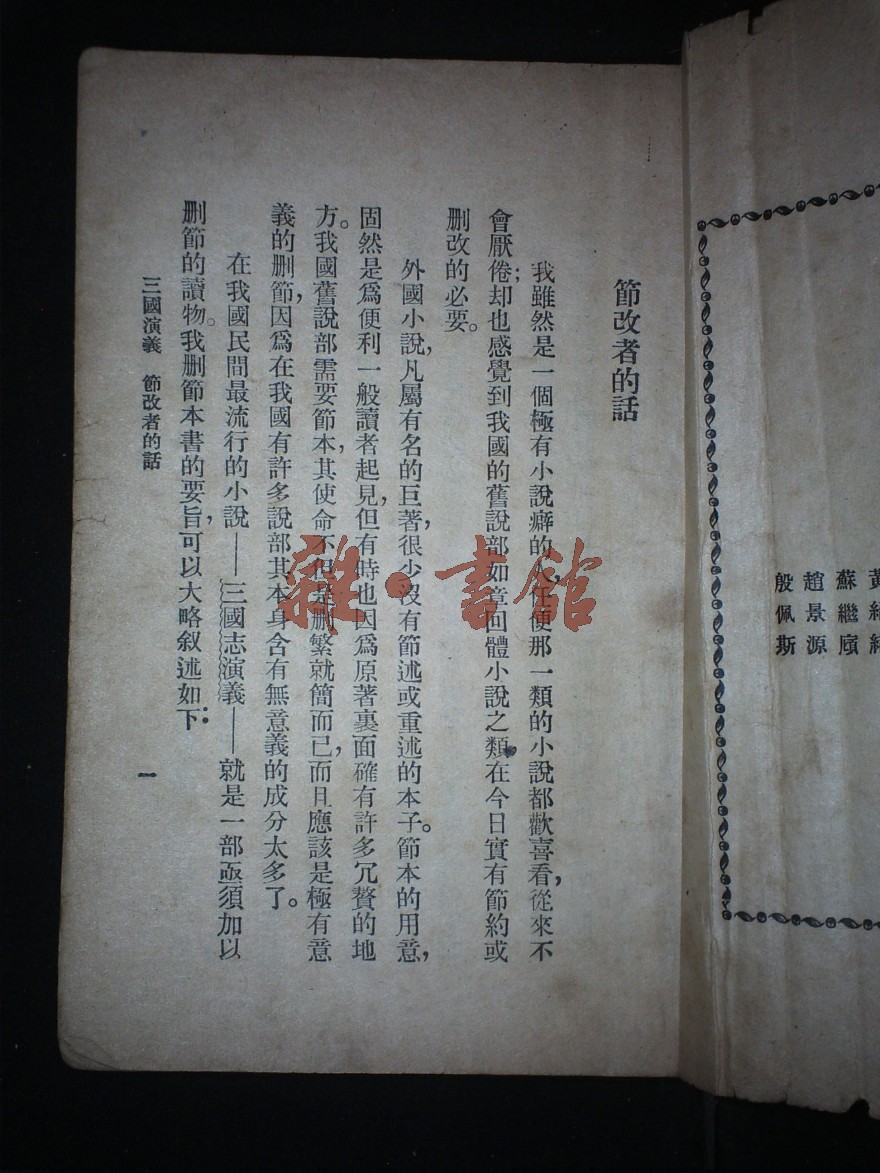 節改者的話
我雖然是一個極有小說癖的人,任便那一類的小說都歡喜看,從來不
會厭倦;却也感覺到我國的舊說部如章回體小說之類,在今日實有節約或
删改的必要。
外國小說,凡屬有名的巨著,很少沒有節述或重述的本子。節本的用意,
固然是爲便利一般讀者起見,但有時也因爲原著裏面確有許多冗贅的地
方。我國舊說部需要節本,其使命不但是删繁就簡而已,而且應該是極有意
義的删節,因爲在我國有許多說部其本身含有無意義的成分太多了。
在我國民間最流行的小說——三國志演義——就是一部亟須加以
删節的讀物。我删節本書的要旨,可以大略叙述如下:
三國演義 節改者的話
一
黃
蘇繼廎
趙景源
殷佩斯
雜·書館